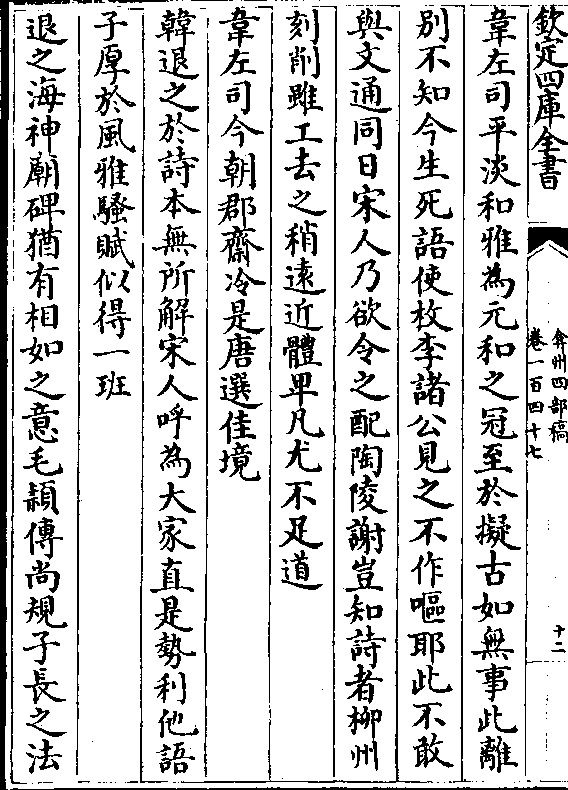 欽定四庫全書
弇州四部稿
卷一百四十七
十二
韋左司平淡和雅為元和之冠至於擬古如無事此離
別不知今生死語使枚李諸公見之不作嘔耶此不敢
與文通同日宋人乃欲令之配陶陵謝豈知詩者柳州
刻削雖工去之稍遠近體卑凡尤不足道
韋左司今朝郡齋冷是唐選佳境
韓退之於詩本無所解宋人呼為大家直是勢利他語
子厚於風雅騷賦似得一班
退之海神廟碑猶有相如之意毛頴傳尚規子長之法